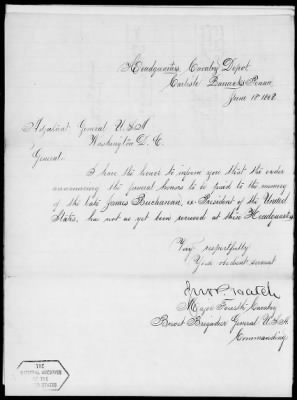 Headquarters Cavalry Depot
Carlisle Barracks Penna
June 10th 1868
Adjutant General U.S.A
Washington D. C.
General.
I have the honor to inform you that the order
announcing the funeral honors to be paid to the memory
of the late James Buchanan, ex-President of the United
States, has not as yet been received at these Headquarters
Very respectfully
Your obedient servant
Major Fourth Cavalry
Brevet Brigadier General U.S.A.
Commanding
THE
NATIONAL ARCHIVES
OF THE
UNITED STATES